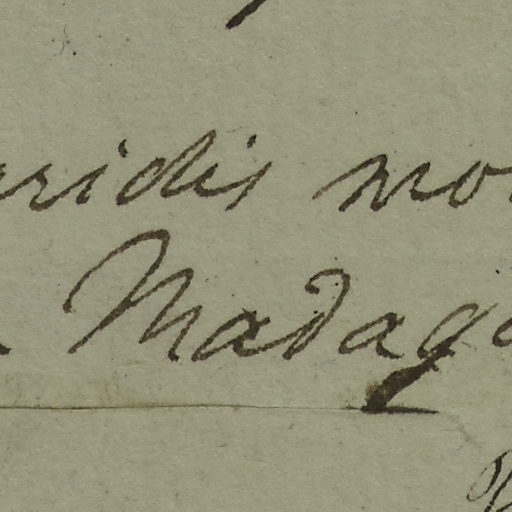 ridis mo
Madaga